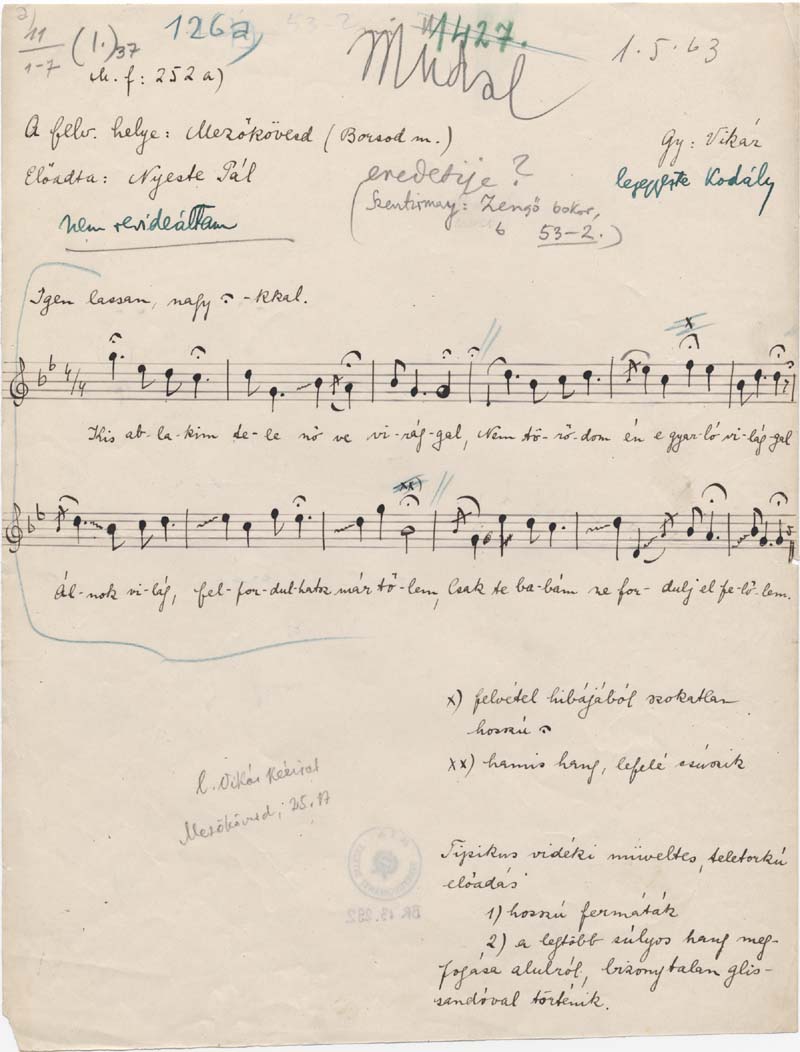 11
1-7
(1.) 37
126a)
53-2
1427.
Műdal
1.5.63
M. f: 252 a)
A felv. helye: Mezőkövesd (Borsod m.)
Gy: Vikár
Előadta: Nyeste Pál
eredetije?
lejegyezte Kodály
(Szentirmay: Zengő bokor,
53-2.)
nem revideáltam
Igen lassan, nagy 𝄐-kkal.
4/4
x
Kis ab-la-kim te-le nő ve vi-rág-gal, Nem tö-rő-dom én e gyar-ló vi-lág-gal
xx)
Ál-nok vi-lág, fel-for-dul-hatsz már tő-lem, Csak te ba-bám ne for-dulj el fe-lő-lem.
x) felvétel hibájából szokatlan
hosszú 𝄐
xx) hamis hang, lefelé csúszik
l. Vikár kézirat
Mezőkövesd, 25.17
Tipikus vidéki műveltes, teletorkú
előadás
1) hosszú fermáták
2) a legtöbb súlyos hang meg-
fogása alulról, bizonytalan glis-
sandóval történik.